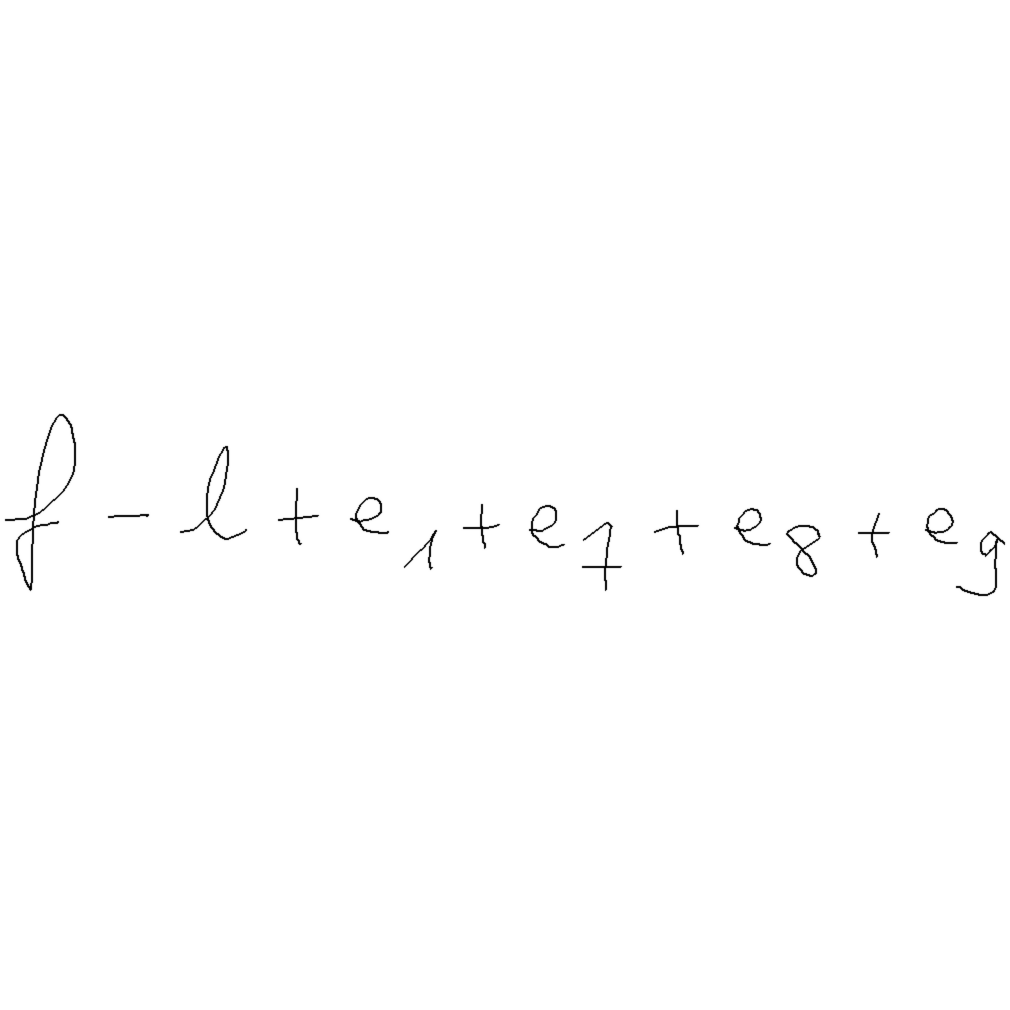 f - l + e₁ + e₇ + e₈ + e₉